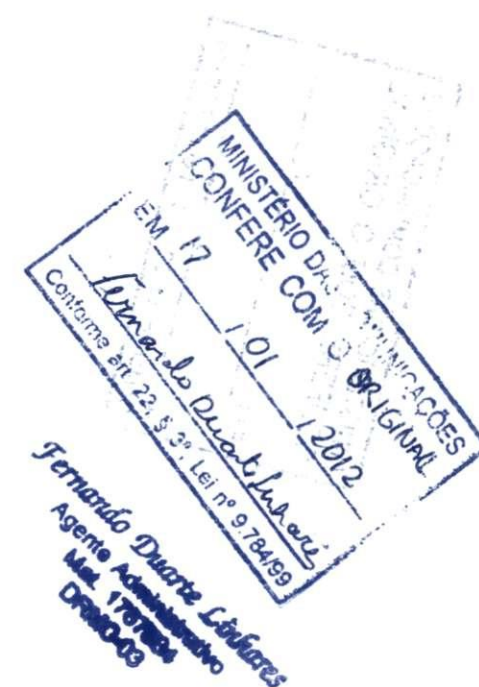 MINISTÉRIO DAS COMUNICAÇÕES
CONFERE COM O ORIGINAL
EM 17 / 01 / 2012
Fernando Duarte Linhares
Conforme art. 22, § 3º, Lei nº 9.784/99
Fernando Duarte Linhares
Agente Administrativo
Mat.